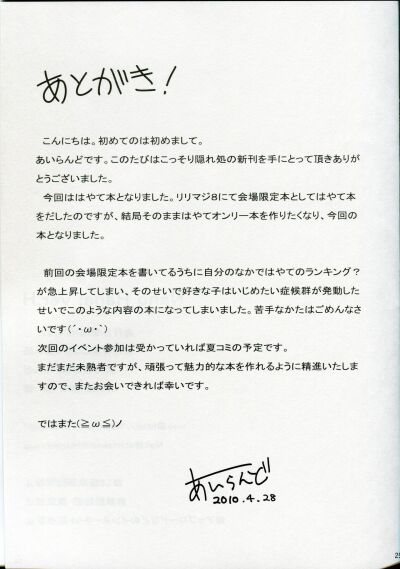 あとがき！
こんにちは。初めてのは初めまして。
あいらんどです。このたびはこっそり隠れ処の新刊を手にとって頂きありが
とうございました。
今回ははやて本となりました。リリマジ8にて会場限定本としてはやて本
をだしたのですが、結局そのままはやてオンリー本を作りたくなり、今回の
本となりました。
前回の会場限定本を書いてるうちに自分のなかではやてのランキング？
が急上昇してしまい、そのせいで好きな子はいじめたい症候群が発動した
せいでこのような内容の本になってしまいました。苦手なかたはごめんなさ
いです(´・ω・`)
次回のイベント参加は受かっていれば夏コミの予定です。
まだまだ未熟者ですが、頑張って魅力的な本を作れるように精進いたしま
すので、またお会いできれば幸いです。
ではまた(≧ω≦)ノ
あいらんど
2010.4.28